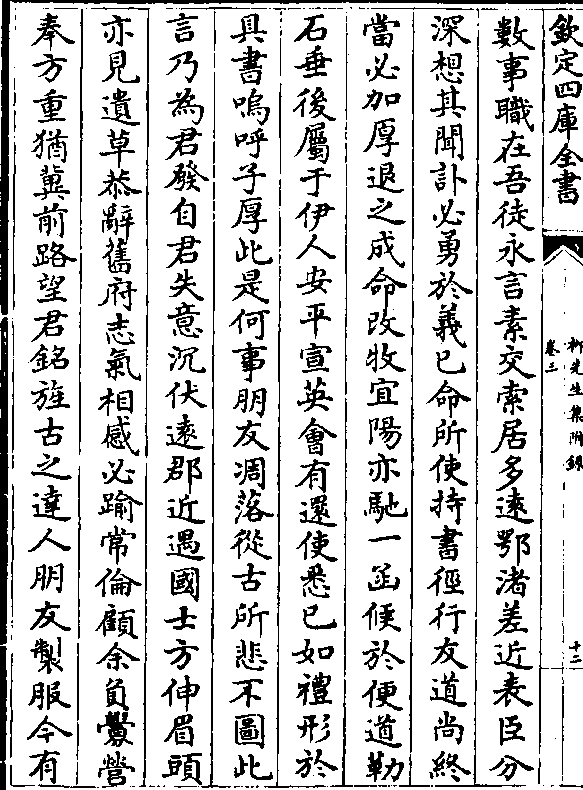 欽定四庫全書
柳先生集附錄
卷三
十二
數事職在吾徒永言素交索居多遠鄂渚差近表臣分
深想其聞訃必勇於義已命所使持書徑行友道尚終
當必加厚退之成命改牧宜陽亦馳一函候於便道勒
石垂後屬于伊人安平宣英會有還使悉已如禮形於
具書嗚呼子厚此是何事朋友凋落從古所悲不圖此
言乃為君發自君失意沉伏遠郡近遇國士方伸眉頭
亦見遺草恭辭舊府志氣相感必踰常倫顧余負釁營
奉方重猶冀前路望君銘旌古之達人朋友製服今有